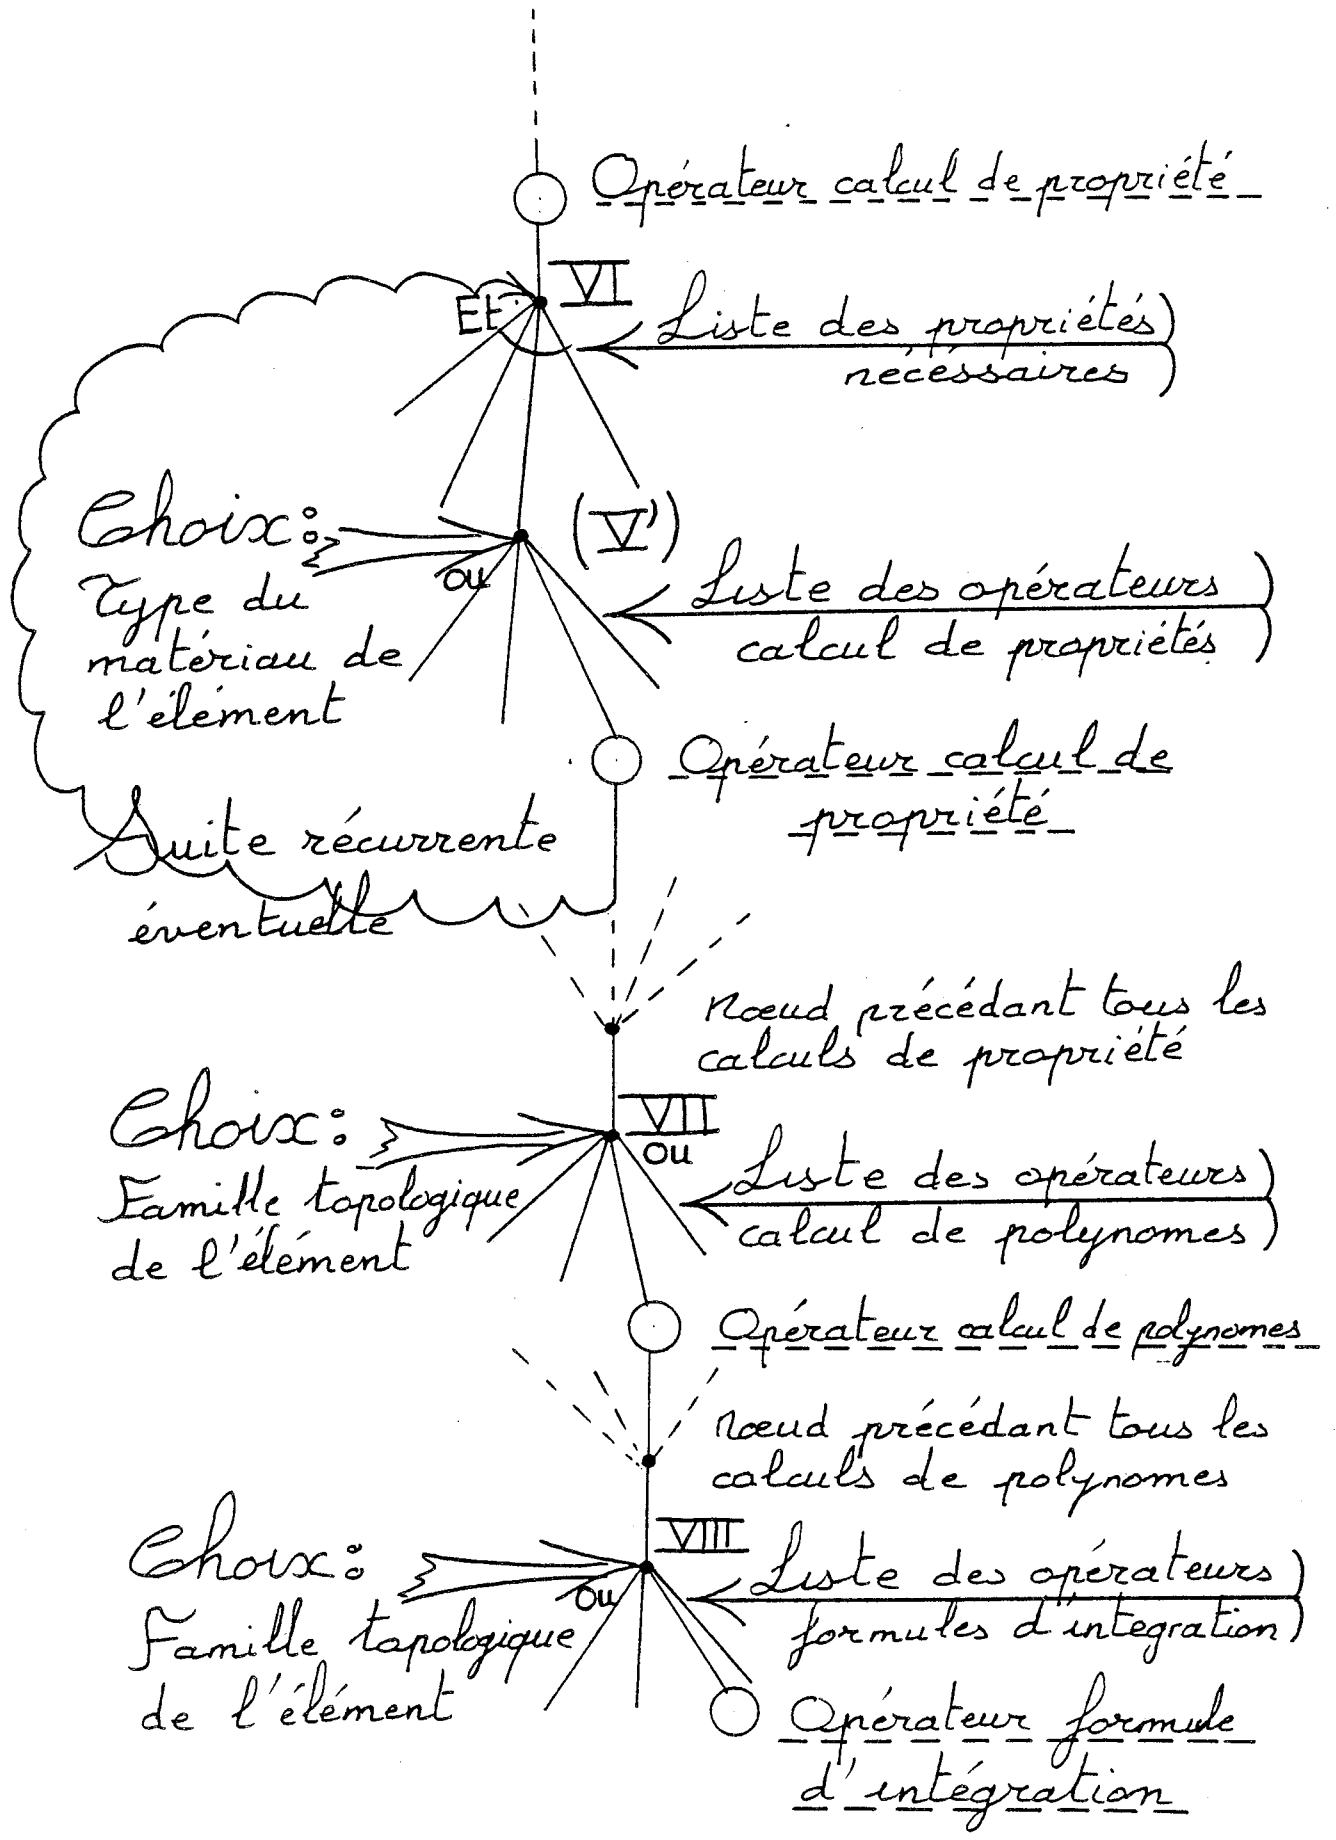 Opérateur calcul de propriété
VI
Et
Liste des propriétés
nécéssaires
Choix:
(V')
ou
Type du
matériau de
l'élément
Liste des opérateurs
calcul de propriétés
Opérateur calcul de
propriété
Suite récurrente
éventuelle
Nœud précédant tous les
calculs de propriété
Choix:
VII
ou
Famille topologique
de l'élément
Liste des opérateurs
calcul de polynomes
Opérateur calcul de polynomes
Nœud précédant tous les
calculs de polynomes
Choix:
VIII
ou
Famille topologique
de l'élément
Liste des opérateurs
formules d'intégration
Opérateur formule
d'intégration